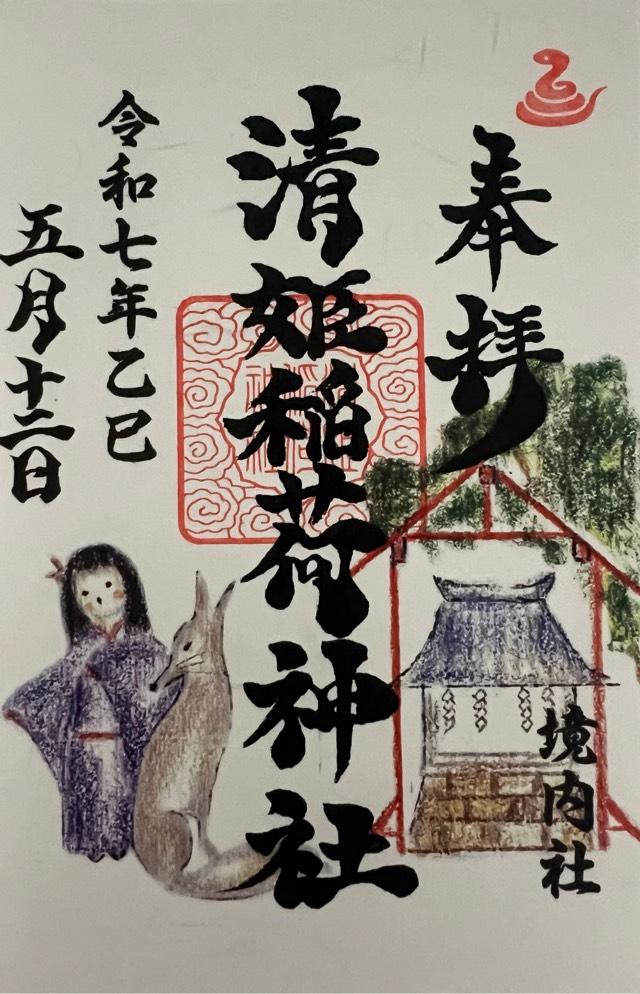 奉拝
境内社
清姫稲荷神社
令和七年乙巳
五月十二日